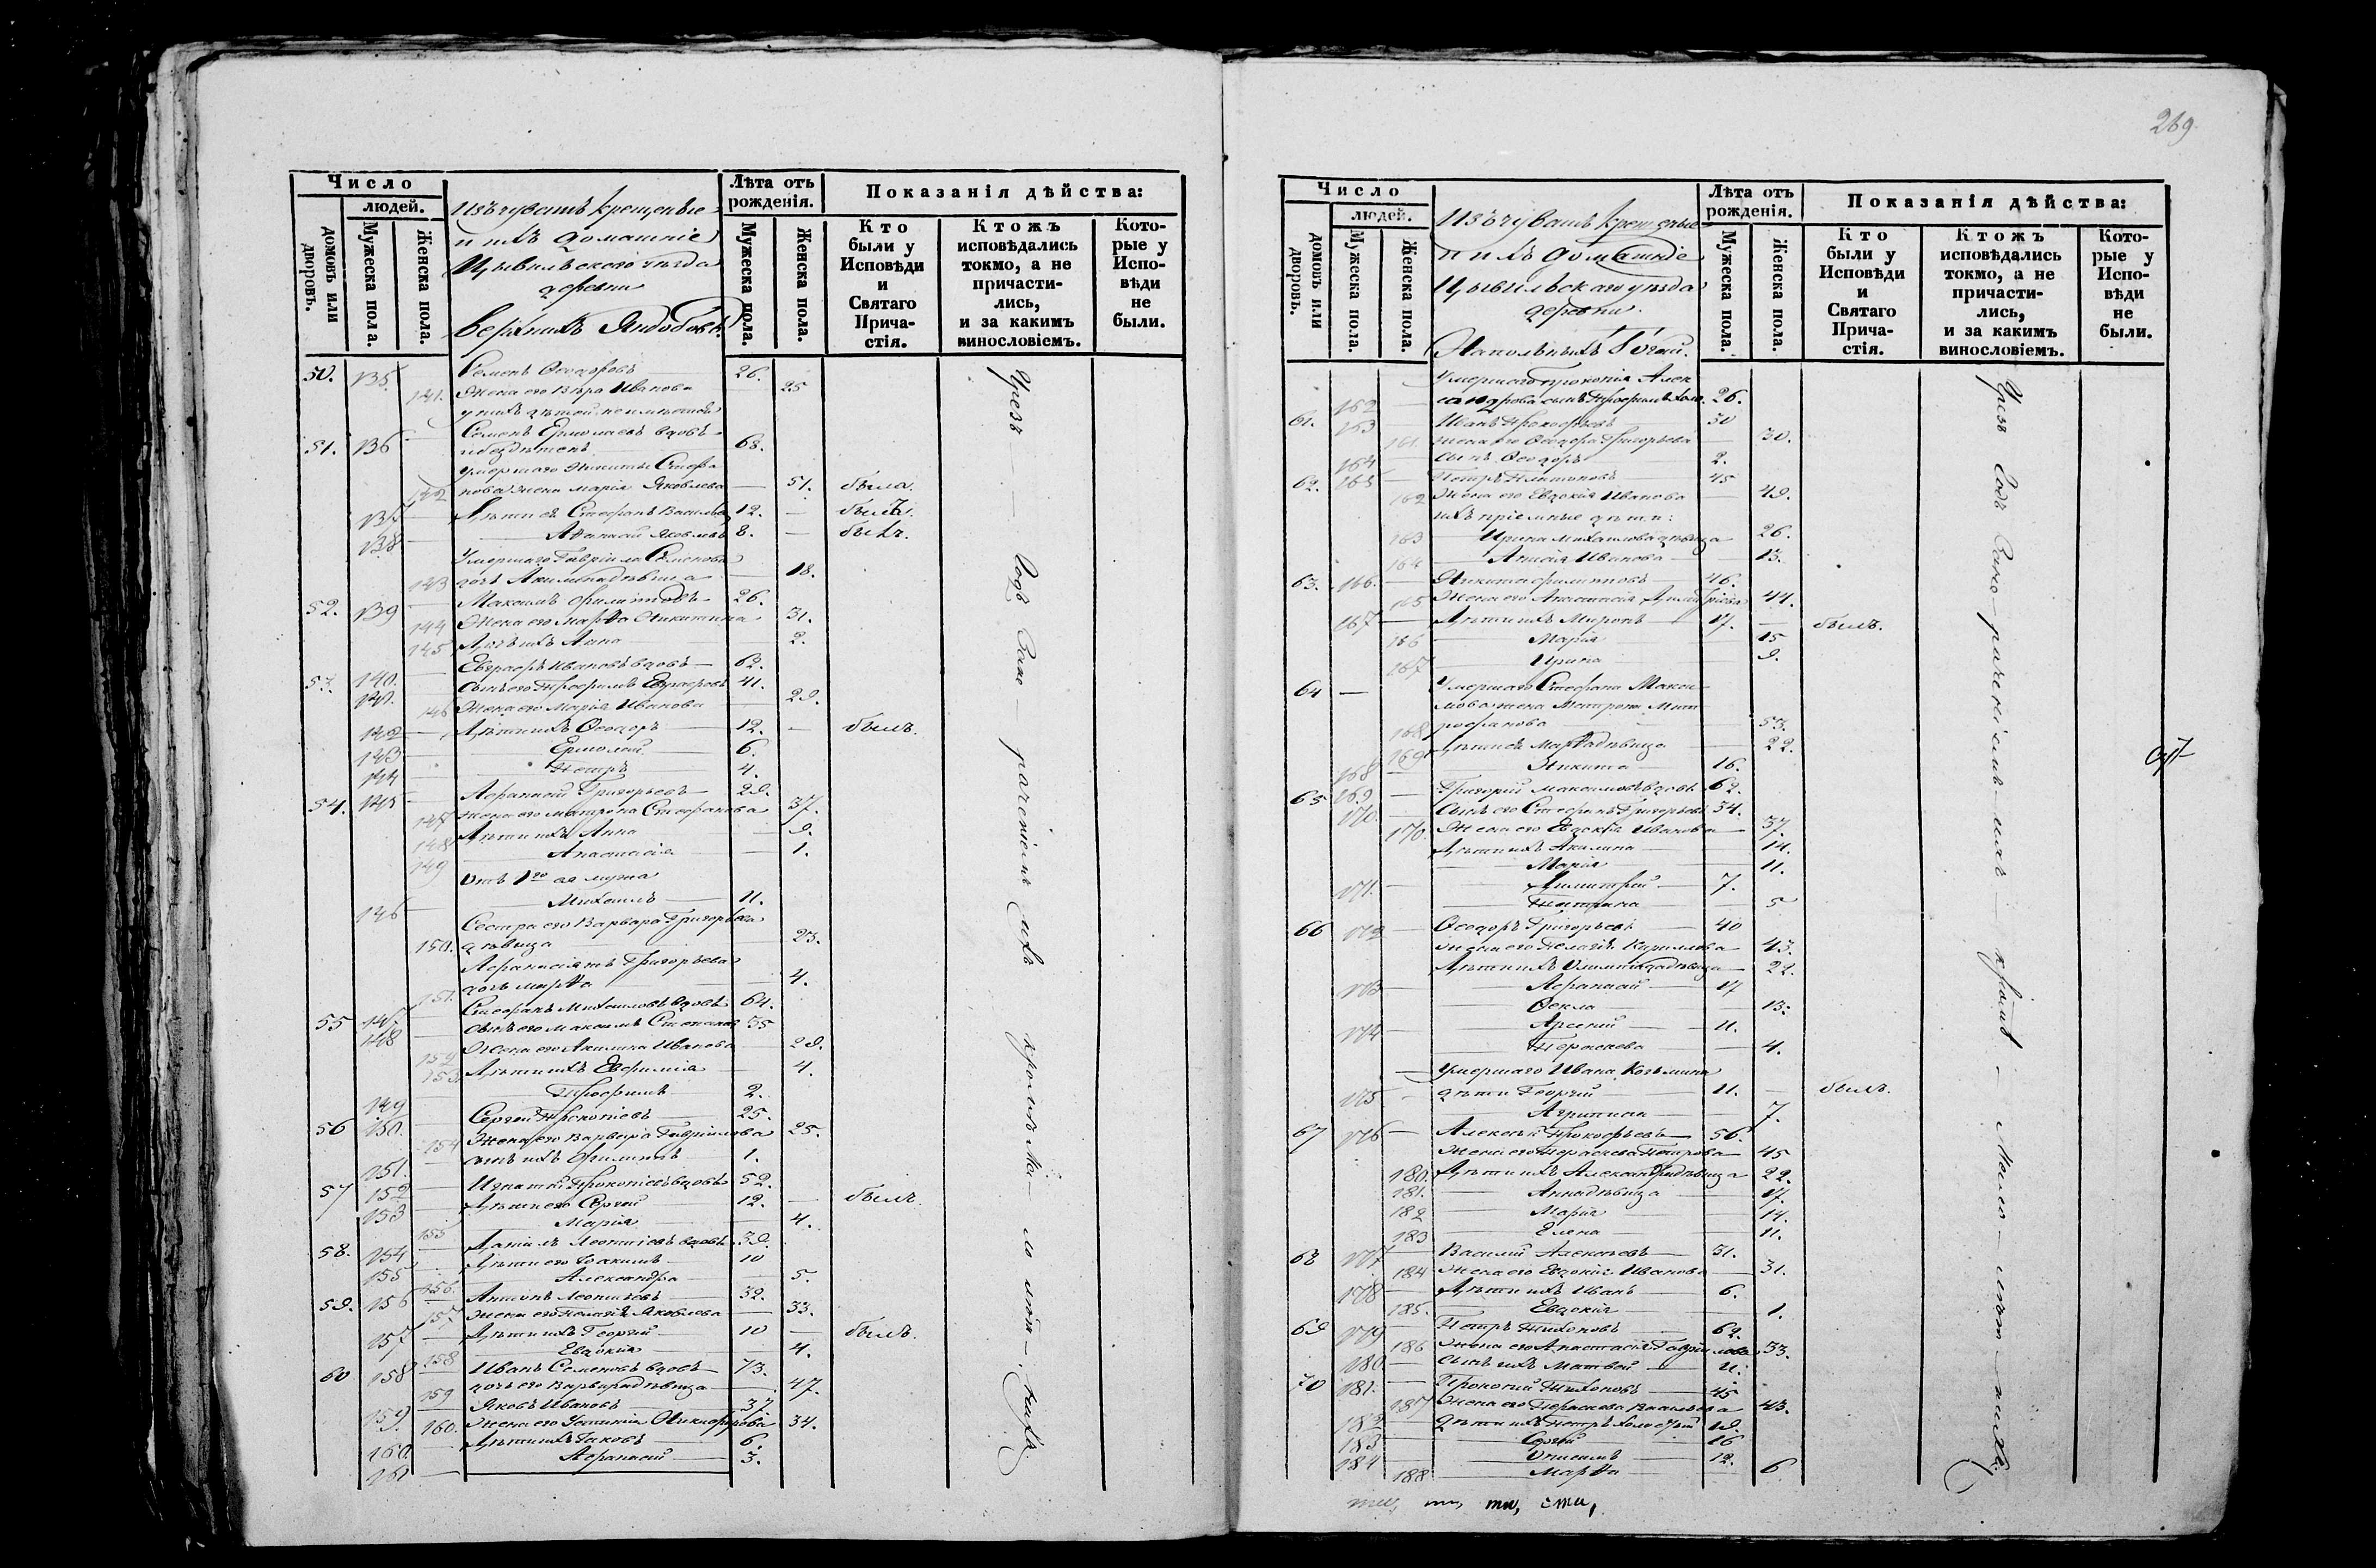 269
Число
людей.
домовъ или дворовъ.
Мужеска пола.
Женска пола.
Изъ чувашъ крещеные
и ихъ домашніе
Цывильскаго уѣзда
деревни
Верхнихъ
Лѣта отъ рожденія.
Мужеска пола.
Женска пола.
Показанія дѣйства:
Кто были у Исповѣди и Святаго Прича-стія.
Ктожъ исповѣдались токмо, а не причасти-лись, и за какимъ винословіемъ.
Кото-рые у Испо-вѣди не были.
50. 135. Семенъ Ѳеодоровъ 26.
141. Жена его Вѣра Иванова 25
у нихъ дѣтей не имѣется
51. 136 Семенъ Ермолаевъ вдовъ
и бездѣтенъ 68.
умершаго Никиты Стефа
142 нова жена Марія Яковлева 51. была.
137 Дѣти ея Стефанъ 12. былъ.
138 8. былъ.
Умершаго Гавріила Семенова
143 дочь Акилина дѣвица 18.
52. 139 Максимъ Филиповъ 26.
144 Жена его Марѳа Никитина 31.
145 Дочь ихъ Анна 2.
53. 140. Евграфъ Ивановъ вдовъ 62.
141. Сынъ его Трофимъ Евграфовъ 41.
146 Жена его Марія Иванова 29.
142 Дѣти ихъ Ѳеодоръ 12. былъ.
143 Ермолай 6.
144 Петръ 4.
54. 145 Аѳанасій Григорьевъ 29.
147 Жена его Матрона Стефанова 37.
148 Дѣти ихъ Анна 9.
149 Анастасія 1.
Отъ 1го ея мужа
146 Михаилъ 11.
Сестра его Варвара Григорьева
150. дѣвица 23.
Григорьева
151. дочь Марѳа 4.
55 147 Стефанъ Михаиловъ вдовъ 64.
148 Сынъ его Максимъ Степановъ 35
152 Жена его Акилина Иванова 29.
153 Дѣти ихъ Евфимія 4.
149 Трофимъ 2.
56 150. Сергей Прокопіевъ 25.
154 Жена его Варвара Гавріилова 25.
151. Сынъ ихъ Филиппъ 1.
57 152 Игнатій Прокопіевъ вдовъ 52.
153 Дѣти его Сергей 12. былъ
155 Марія 4.
58. 154 Даніилъ Леонтіевъ вдовъ 39.
155 Дѣти его Іоакимъ 10
156. Александра 5.
59. 156 Антонъ Леонтьевъ 32.
157 Жена его Пелагія Яковлева 33.
157 Дѣти ихъ Георгій 10 былъ.
158 Евдокія 4.
60 158 Иванъ Семеновъ вдовъ 73.
159 дочь его Варвара дѣвица 47.
159. Яковъ Ивановъ 37
160. Жена его Устинія Никифорова 34.
160. Дѣти ихъ Іаковъ 6.
161 Аѳанасій 3.
Чрезъ Годъ
нераченіемъ ихъ
кромѣ мало лѣт-нихъ.
Число
людей.
домовъ или дворовъ.
Мужеска пола.
Женска пола.
Изъ чувашъ крещеные
и ихъ домашніе
Цывильскаго уѣзда
деревни.
Напольныхъ
Лѣта отъ рожденія.
Мужеска пола.
Женска пола.
Показанія дѣйства:
Кто были у Исповѣди и Святаго Прича-стія.
Ктожъ исповѣдались токмо, а не причасти-лись, и за какимъ винословіемъ.
Кото-рые у Испо-вѣди не были.
Умершаго Прокопія Алек
162 сандрова сынъ Трофимъ холо. 26.
61. 163 Иванъ Прокофьевъ 30
161. Жена его Ѳеодора Григорьева 30.
164 Сынъ Ѳеодоръ 2.
62. 165 Петръ 45
162 Жена его Евдокія Иванова 49.
ихъ пріемные дѣти:
163 Ирина Михаилова дѣвица 26.
164 Иванова 13.
63. 166. Никита Филиповъ 46.
165 Жена его Анастасія Димитріева 44.
167 Дѣти ихъ Миронъ 17. былъ.
166 Марія 15
167 Ирина 9.
64 Умершаго Стефана Макси
мова жена Матрона Мит
168 рофанова 53.
169 Дѣти ея Марѳа дѣвица 22.
168 Никита 16.
65 169 Григорій Максимовъ вдовъ 62.
170. Сынъ его Стефанъ Григорьевъ 34.
170. Жена его Евдокія Иванова 37.
Дѣти ихъ Акилина 14.
Марія 11.
171. Димитрій 7.
Матрона 5
66 172 Ѳеодоръ Григорьевъ 40
Жена его Пелагія Кириллова 43.
Дѣти ихъ дѣвица 22.
173 Аѳанасій 17
Ѳекла 13.
174 Арсеній 11.
Параскева 4.
Умершаго Ивана Козьмина
175 дѣти Георгій 11. былъ.
Агрипина 7.
67 176 Алексѣй Прокофьевъ 56.
Жена его Параскева Петрова 45
180. Дѣти ихъ Александра дѣвица 22.
181. Анна дѣвица 17.
182 Марія 14.
183 Елена 11.
68 177 Василій Алексѣевъ 31.
184 Жена его Евдокія Иванова 31.
178 Дѣти ихъ Иванъ 6.
185. Евдокія 1.
69 179 Петръ Тихоновъ 62.
186 Жена его Анастасія Гаврилова 53.
180 Сынъ ихъ Матвей 11.
70 181. Прокопій Тихоновъ 45
187 Жена его Параскева Васильева 43.
182 Дѣти ихъ Петръ холостый 19.
183 Сергей 16
184 Онисимъ 12.
188 Марѳа 6
Чрезъ Годъ
нераченіемъ ихъ
кромѣ Мало-лѣт-нихъ.